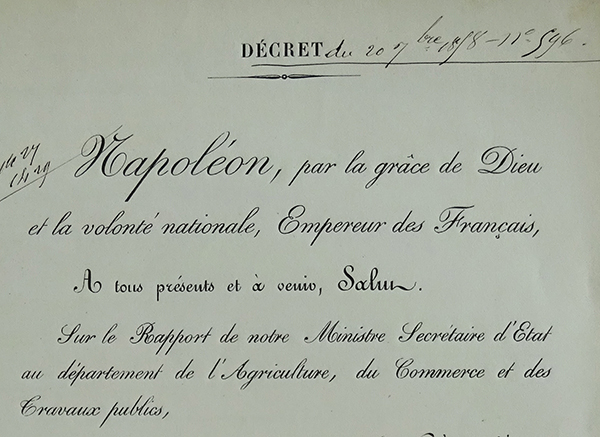 DÉCRET du 20 7bre 1858 - N° 596.
Napoléon, par la grâce de Dieu
et la volonté nationale, Empereur des Français,
A tous présents et à venir, Salut.
Sur le Rapport de notre Ministre Secrétaire d'Etat
au département de l'Agriculture, du Commerce et des
Travaux publics,